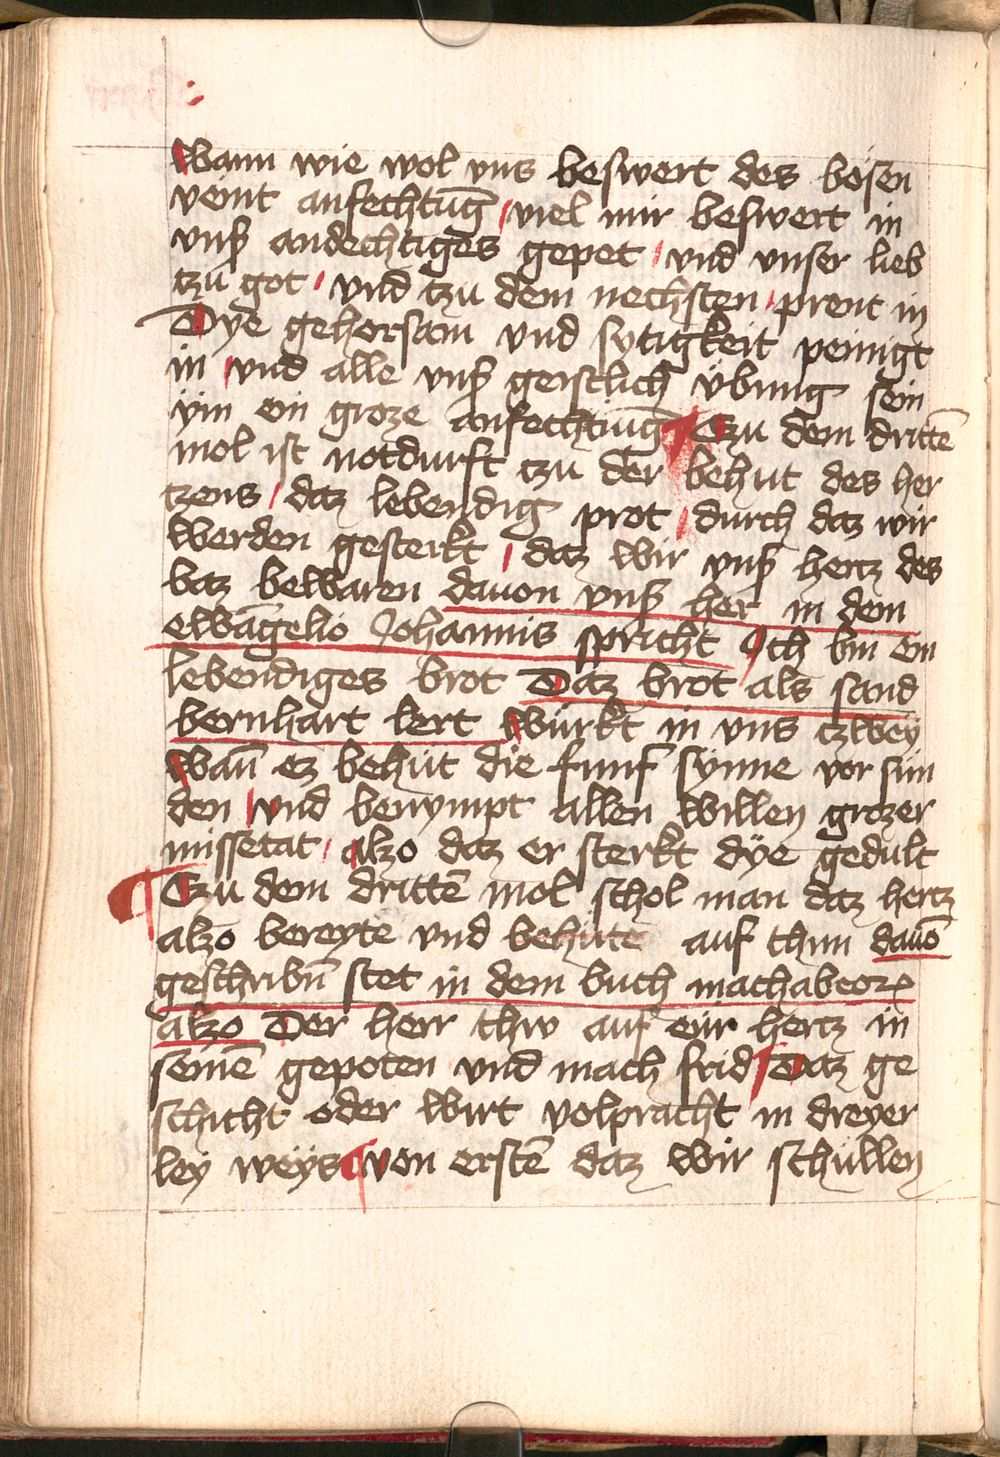 Wann wie wol vns beswert des bösen
veint anfechtūg / viel mir beswert in
vnsʒ andechtiges gepet / vnd vnser lieb
tzu got / vnd tzu dem nechsten / prent in
Dye gehorsam vnd sytigkeit peinigt
in / vnd alle vnsʒ geistlich übung sein
ym ein groze anfechtūg ¶ Tzu dem drittē
mol ist notdurft tzu der behut des her
tzens / daz lebendig prot / durch daz wir
werden gesterkt / daz wir vnsʒ hertz des
baz bewaren dauon vnsʒ her in dem
ewāgelio Johannis spricht Ich bin ein
lebendiges brot Daz brot als sand
bernhart lert Würkt in vns tzwey
Wan̄ ez behüt die fünf synne vor sün
den / vnd benympt allen willen grozer
missetat / alzo daz er sterkt dÿe gedult
¶ Tzu dem drittē mol schol man daz hertz
alzo bereyte vnd behüte auf thun dauō
geschribn̄ stet in dem buch machabeorꝝ
alzo Der herr thw auf eür hertz in
seinē gepoten vnd mach frid ¶ Daz ge
schicht oder wirt volpracht in dreyer
leÿ weÿs ¶ von erstē daz wir schüllen